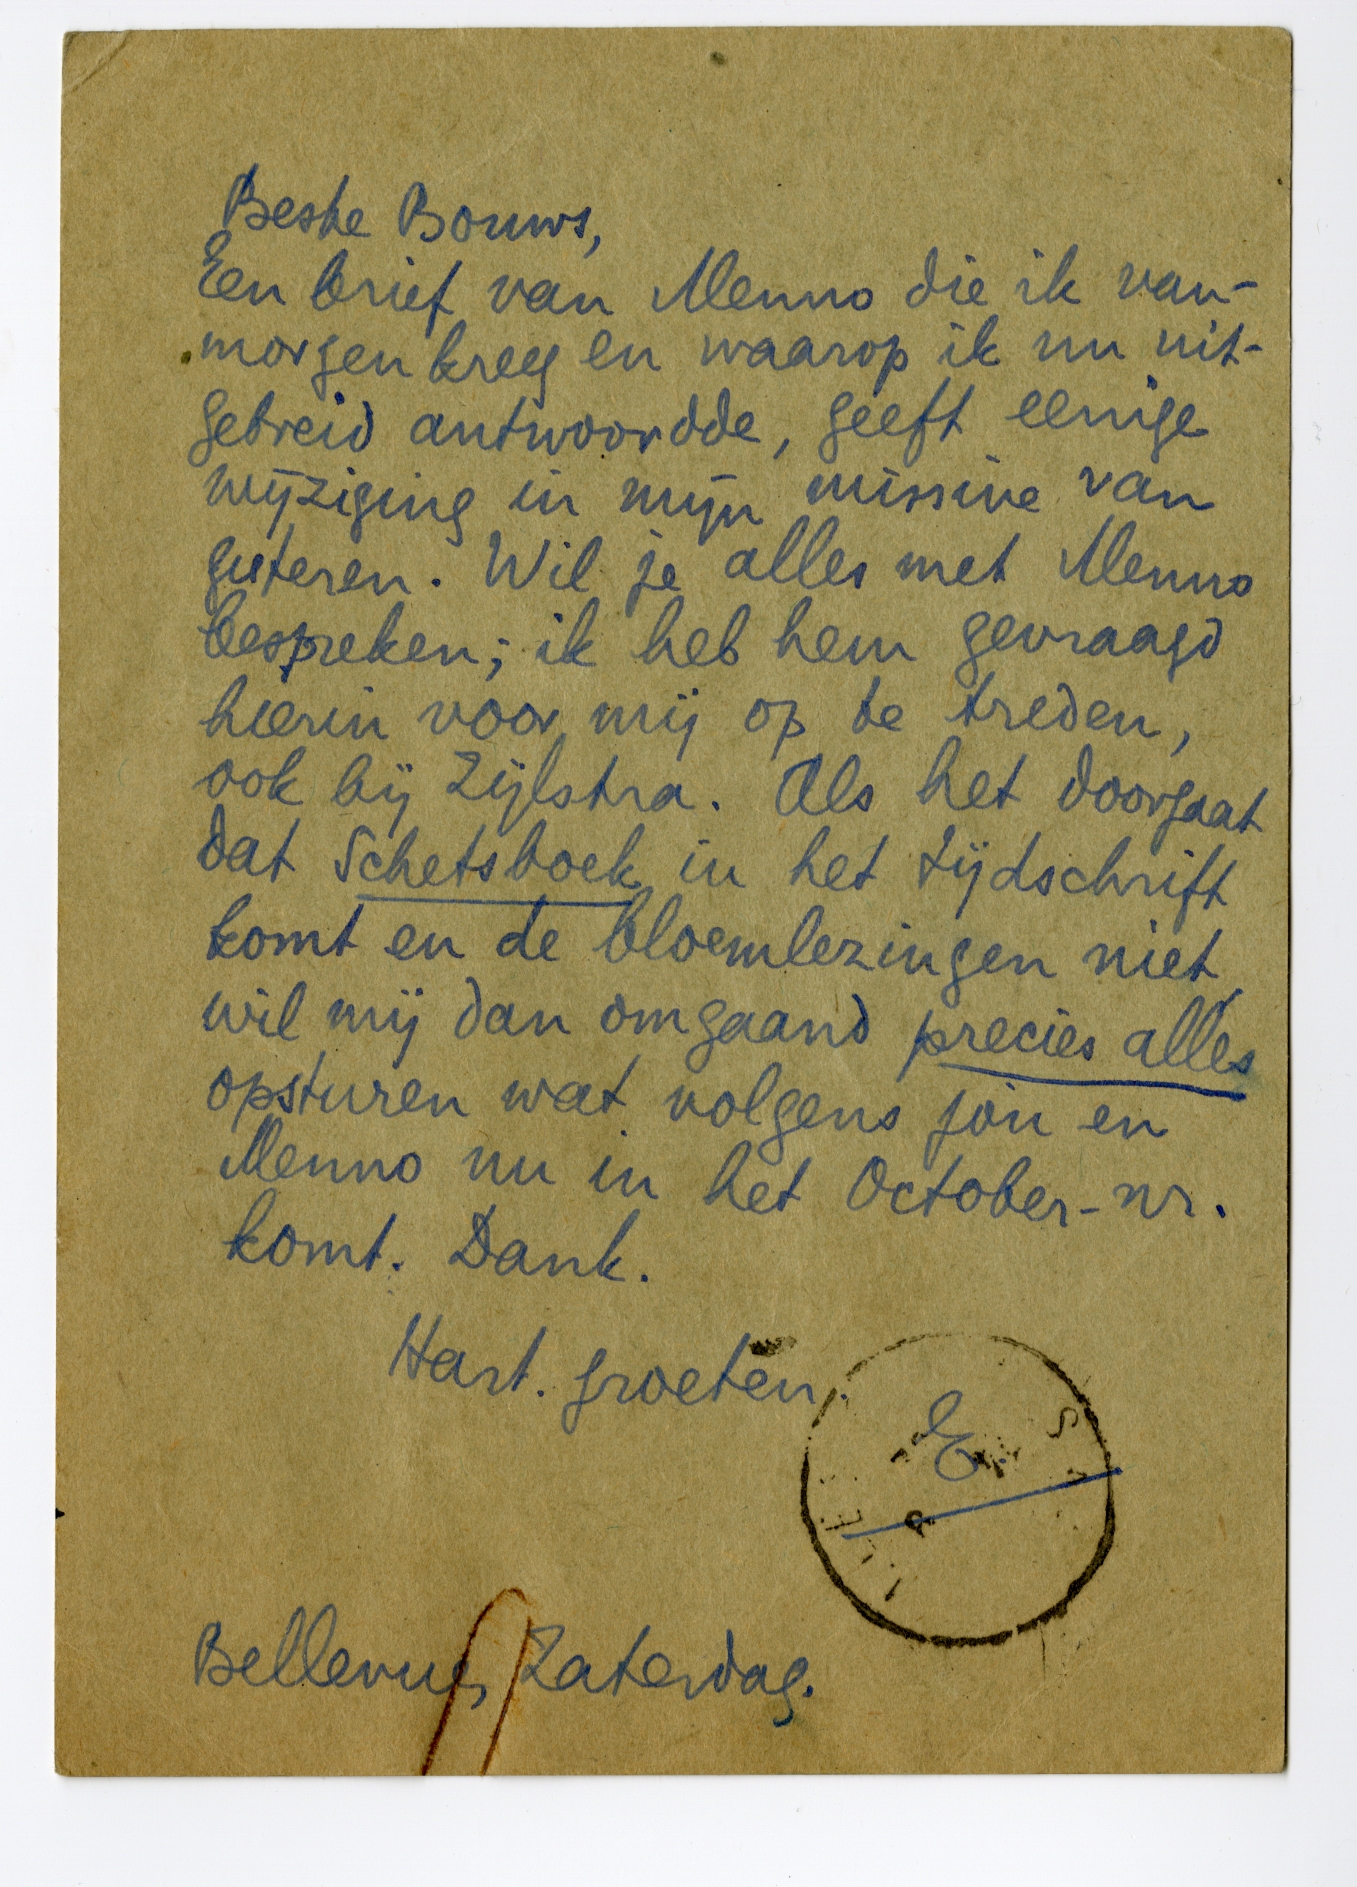 Beste Bouws,
Een brief van Menno die ik van-
morgen kreeg en waarop ik nu uit-
gebreid antwoordde, geeft eenige
wijziging in mijn missive van
gisteren. Wil je alles met Menno
bespreken; ik heb hem gevraagd
hierin voor mij op te treden,
ook bij Zijlstra. Als het doorgaat
dat Schetsboek in het tijdschrift
komt en de bloemlezingen niet,
wil mij dan omgaand precies alles
opsturen wat volgens jou en
Menno nu in het October-nr.
komt. Dank.
Hart. groeten.
E.
Bellevue, Zaterdag.